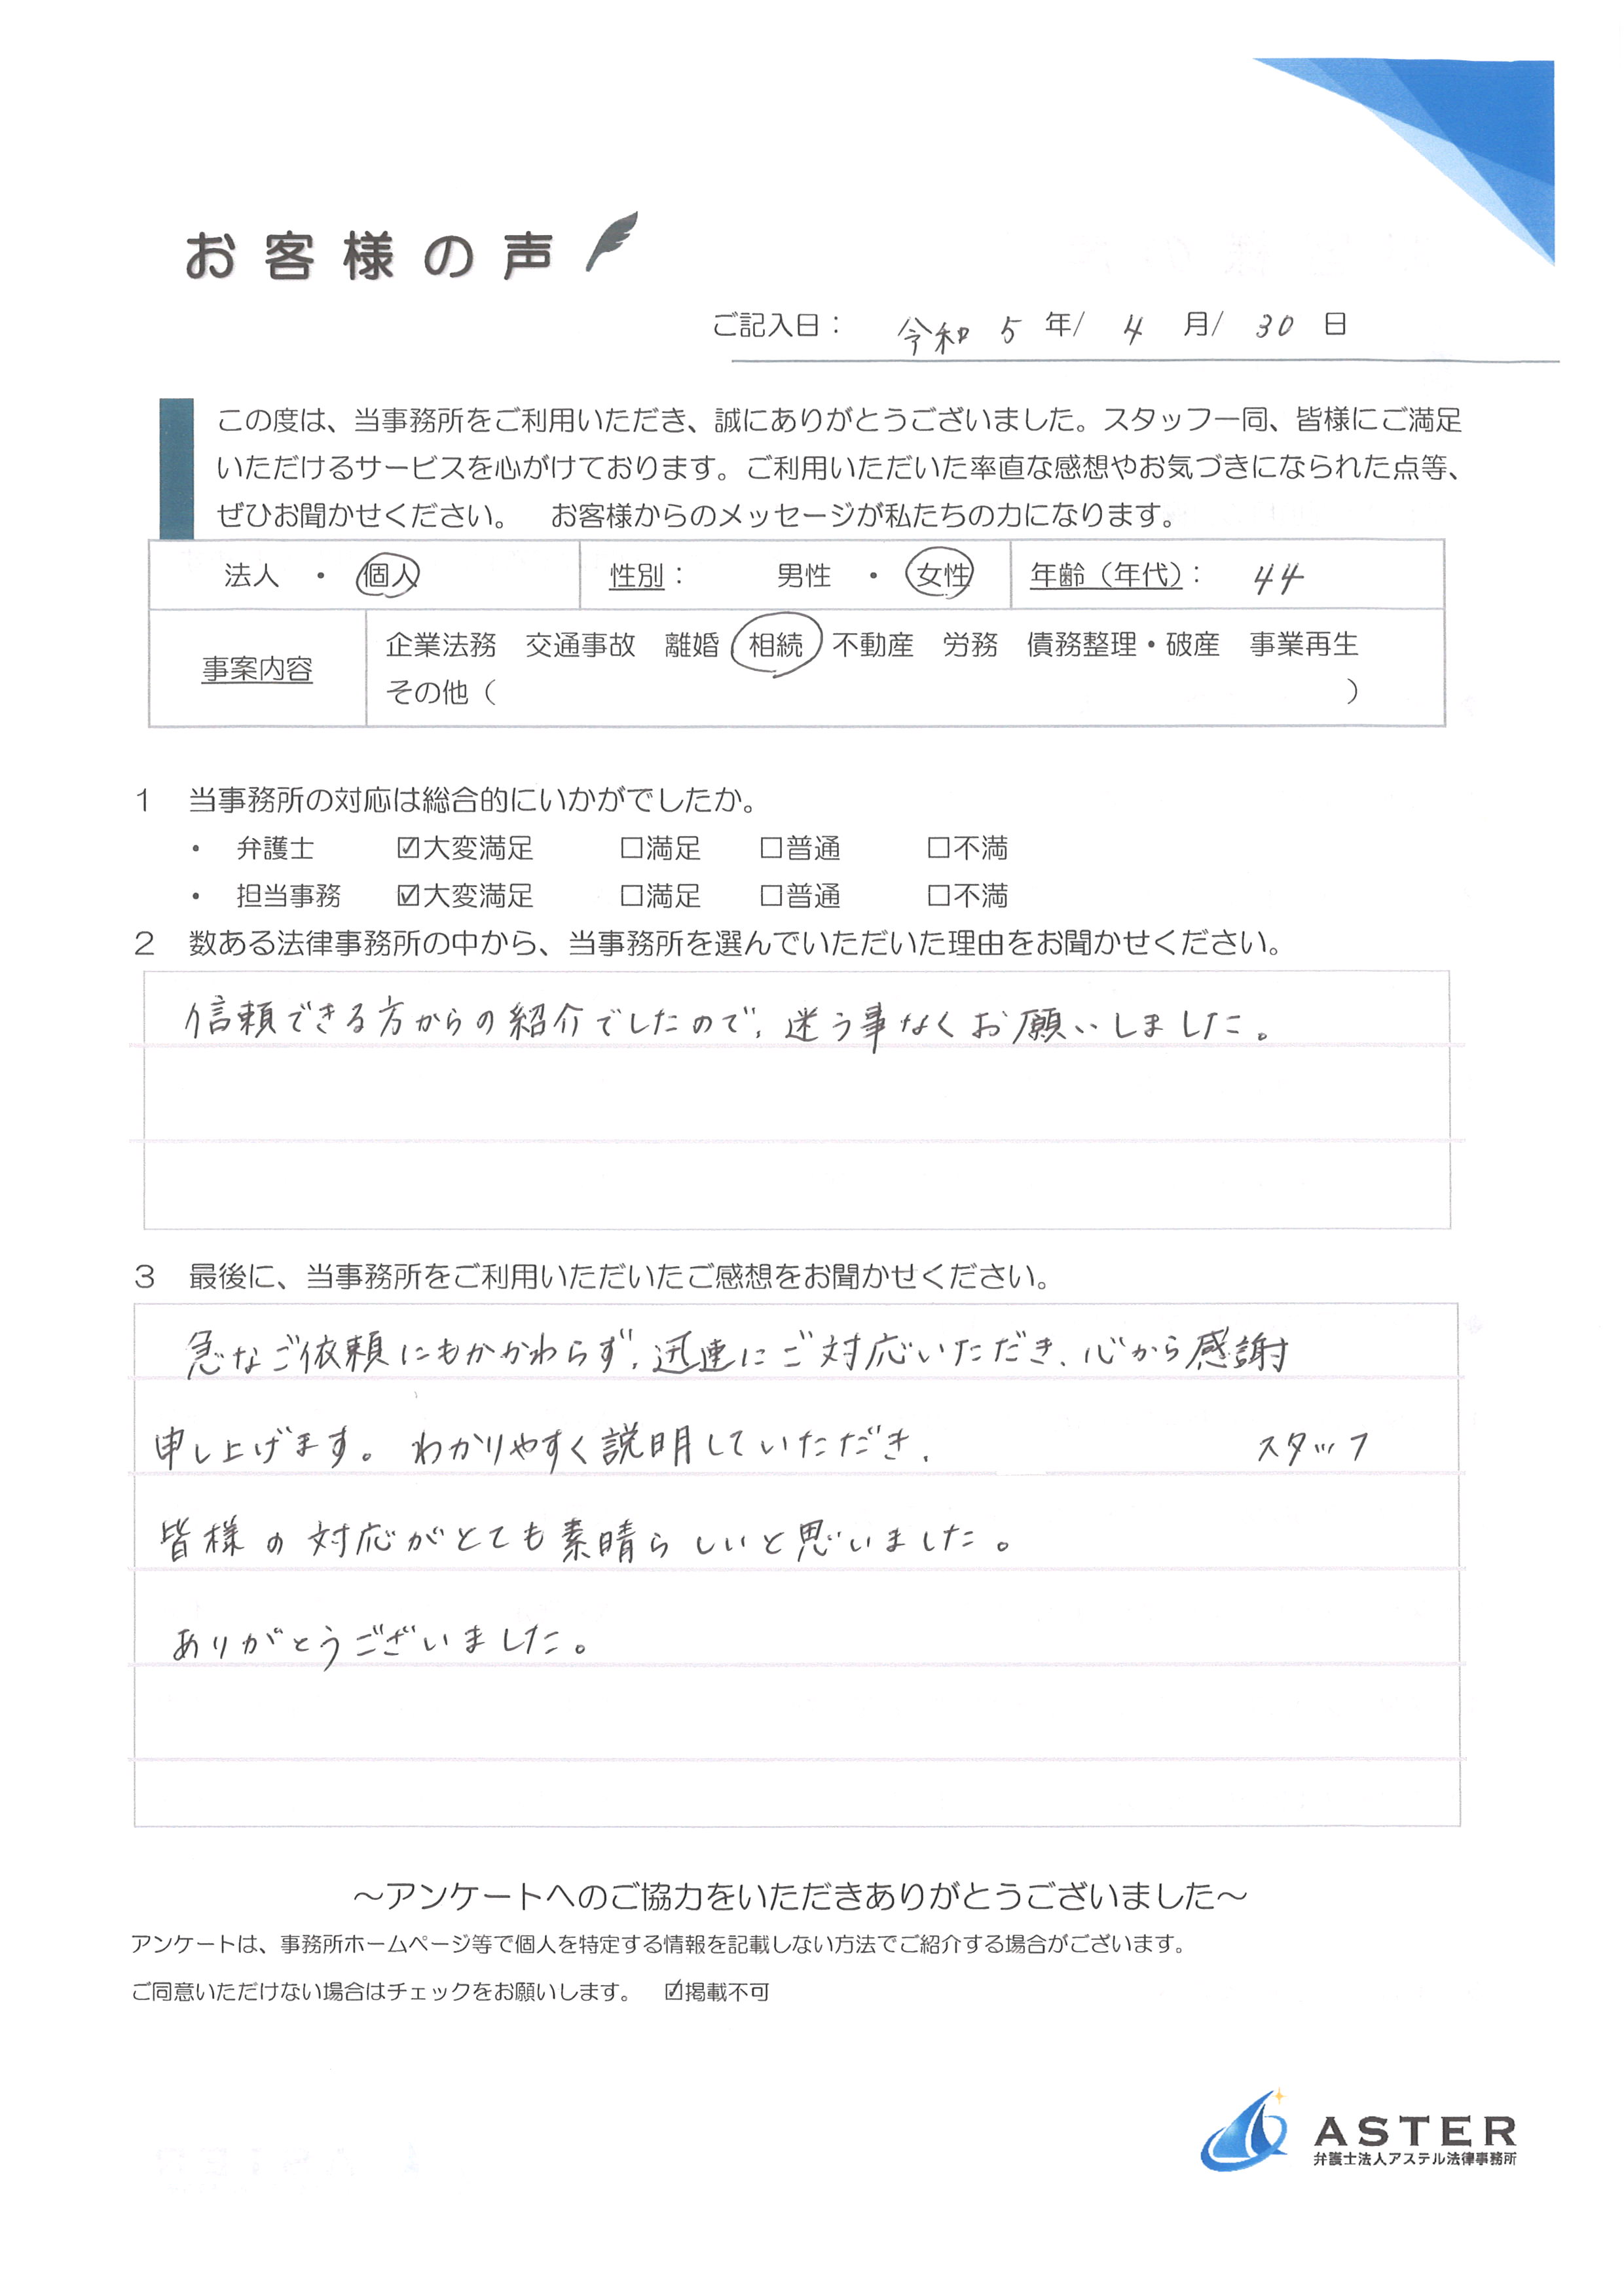 お客様の声
ご記入日： 令和 5 年/ 4 月/ 30 日
この度は、当事務所をご利用いただき、誠にありがとうございました。スタッフ一同、皆様にご満足
いただけるサービスを心がけております。ご利用いただいた率直な感想やお気づきになられた点等、
ぜひお聞かせください。 お客様からのメッセージが私たちの力になります。
法人 ・ 個人 性別： 男性 ・ 女性 年齢（年代）： 44
事案内容
企業法務 交通事故 離婚 相続 不動産 労務 債務整理・破産 事業再生
その他（ ）
1 当事務所の対応は総合的にいかがでしたか。
・ 弁護士 ☑大変満足 □満足 □普通 □不満
・ 担当事務 ☑大変満足 □満足 □普通 □不満
2 数ある法律事務所の中から、当事務所を選んでいただいた理由をお聞かせください。
信頼できる方からの紹介でしたので、迷う事なくお願いしました。
3 最後に、当事務所をご利用いただいたご感想をお聞かせください。
急なご依頼にもかかわらず、迅速にご対応いただき、心から感謝
申し上げます。わかりやすく説明していただき、 スタッフ
皆様の対応がとても素晴らしいと思いました。
ありがとうございました。
～アンケートへのご協力をいただきありがとうございました～
アンケートは、事務所ホームページ等で個人を特定する情報を記載しない方法でご紹介する場合がございます。
ご同意いただけない場合はチェックをお願いします。 ☑掲載不可
ASTER
弁護士法人アステル法律事務所